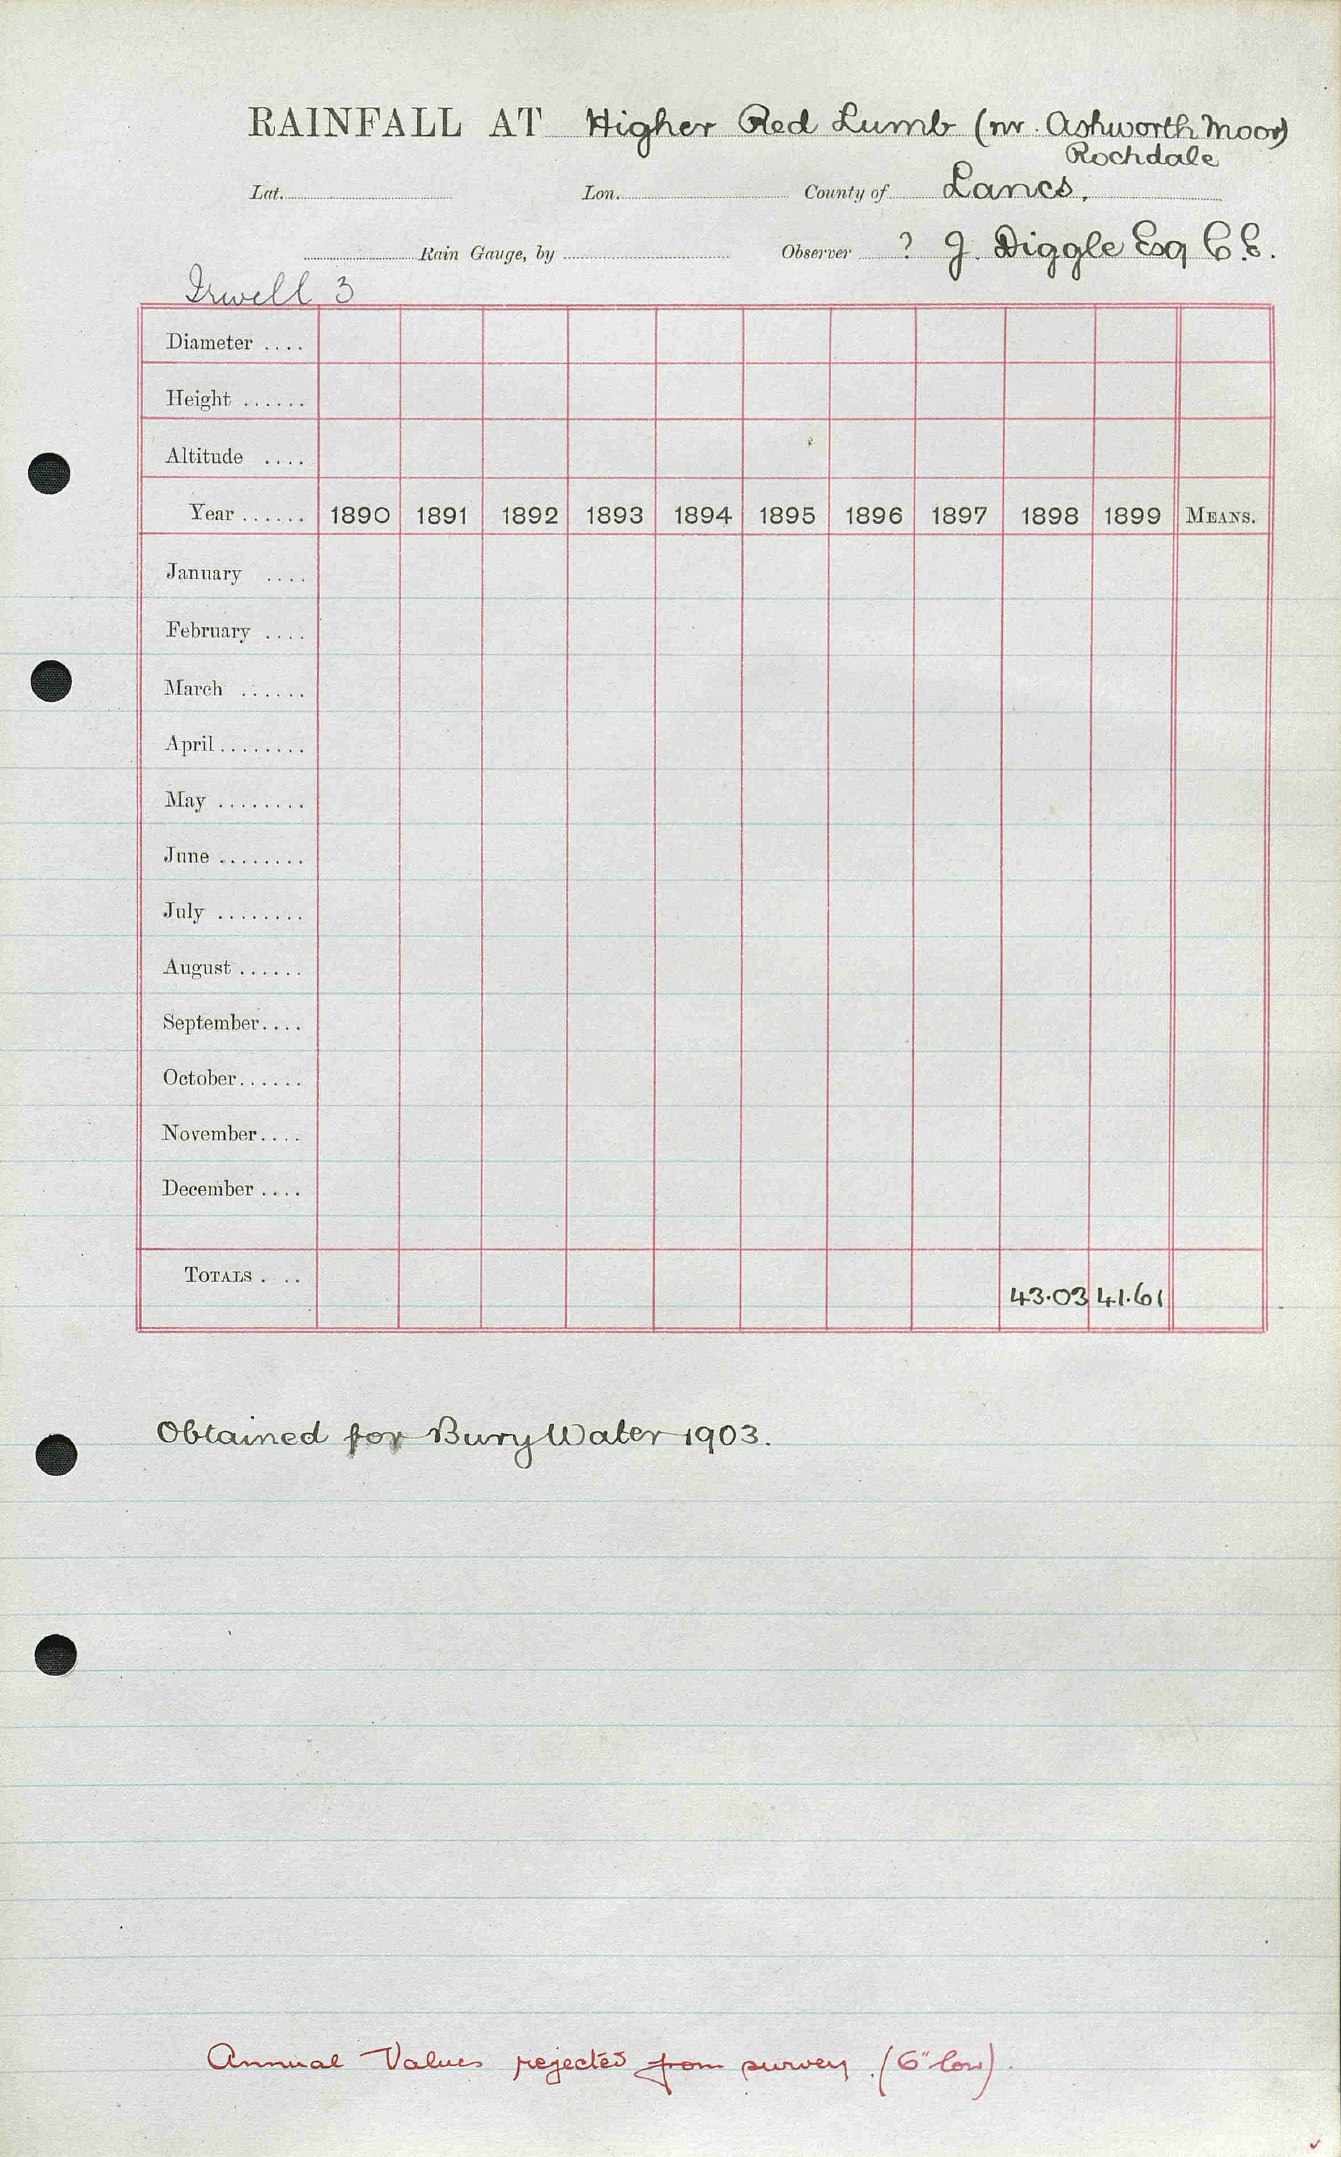 RAINFALL AT Higher Red Lumb (nr. Ashworth Moor)
Rochdale
Lat. Lon. County of Lancs.
Rain Gauge, by Observer ? J. Diggle Esq C.E.
Irwell 3
Diameter ....
Height ......
Altitude ....
Year ...... 1890 1891 1892 1893 1894 1895 1896 1897 1898 1899 MEANS.
January ....
February ....
March ......
April ........
May ........
June ........
July ........
August ......
September....
October......
November....
December ....
TOTALS . .. 43.03 41.61
Obtained for Bury Water 1903.
Annual Values rejected from survey. (6" low).